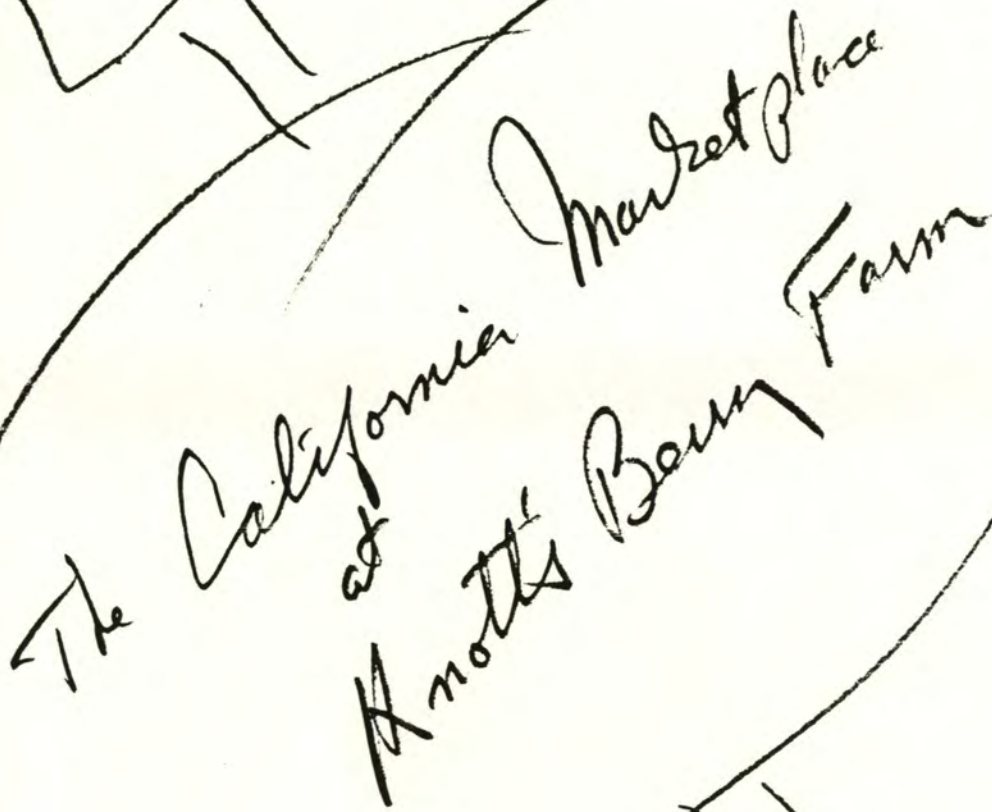 The California Marketplace
at
Knott's Berry Farm